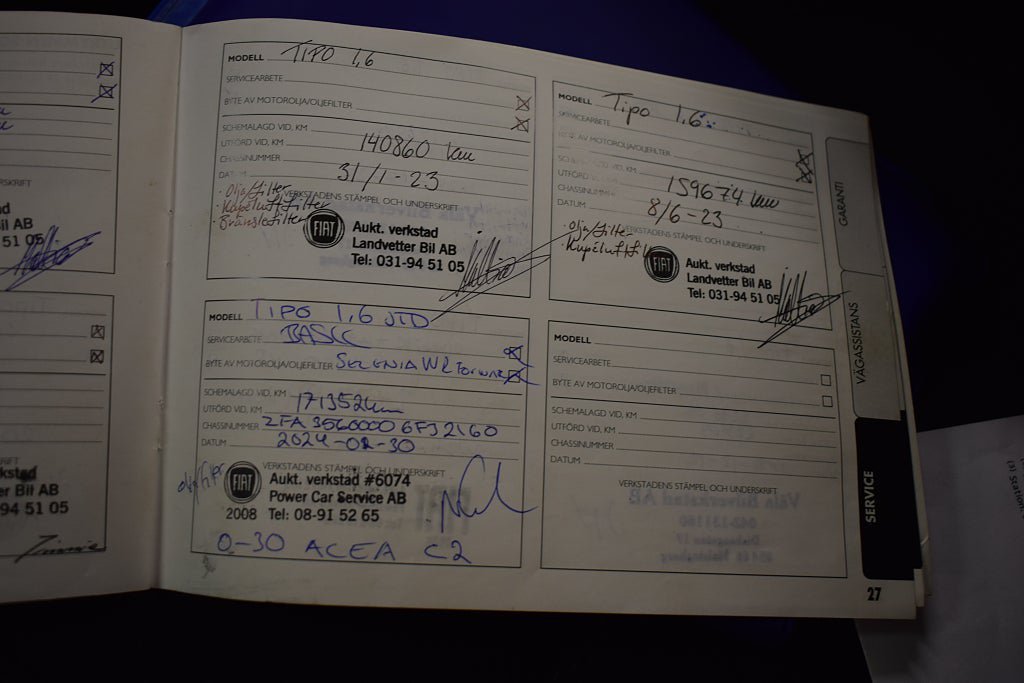 MODELL TIPO 1,6
SERVICEARBETE
BYTE AV MOTOROLJA/OLJEFILTER
SCHEMALAGD VID, KM
UTFÖRD VID, KM 140860 km
CHASSINUMMER
DATUM 31/1-23
VERKSTADENS STÄMPEL OCH UNDERSKRIFT
· Olja/filter
· Kupéluftfilter
· Bränslefilter
FIAT
Aukt. verkstad
Landvetter Bil AB
Tel: 031-94 51 05
MODELL Tipo 1.6
SERVICEARBETE
BYTE AV MOTOROLJA/OLJEFILTER
SCHEMALAGD VID, KM
UTFÖRD VID, KM 159674 km
CHASSINUMMER
DATUM 8/6-23
VERKSTADENS STÄMPEL OCH UNDERSKRIFT
Olja/filter
Kupéluftfil
FIAT
Aukt. verkstad
Landvetter Bil AB
Tel: 031-94 51 05
MODELL TIPO 1,6 JTD
SERVICEARBETE BASIC
BYTE AV MOTOROLJA/OLJEFILTER SELENIA WR FORWARD
SCHEMALAGD VID, KM
UTFÖRD VID, KM 171352km
CHASSINUMMER ZFA3560000 6FJ2160
DATUM
VERKSTADENS STÄMPEL OCH UNDERSKRIFT
olja/filter
FIAT
Aukt. verkstad #6074
Power Car Service AB
2008 Tel: 08-91 52 65
0-30 ACEA C2
MODELL
SERVICEARBETE
BYTE AV MOTOROLJA/OLJEFILTER
SCHEMALAGD VID, KM
UTFÖRD VID, KM
CHASSINUMMER
DATUM
VERKSTADENS STÄMPEL OCH UNDERSKRIFT
GARANTI
VÄGASSISTANS
SERVICE
27